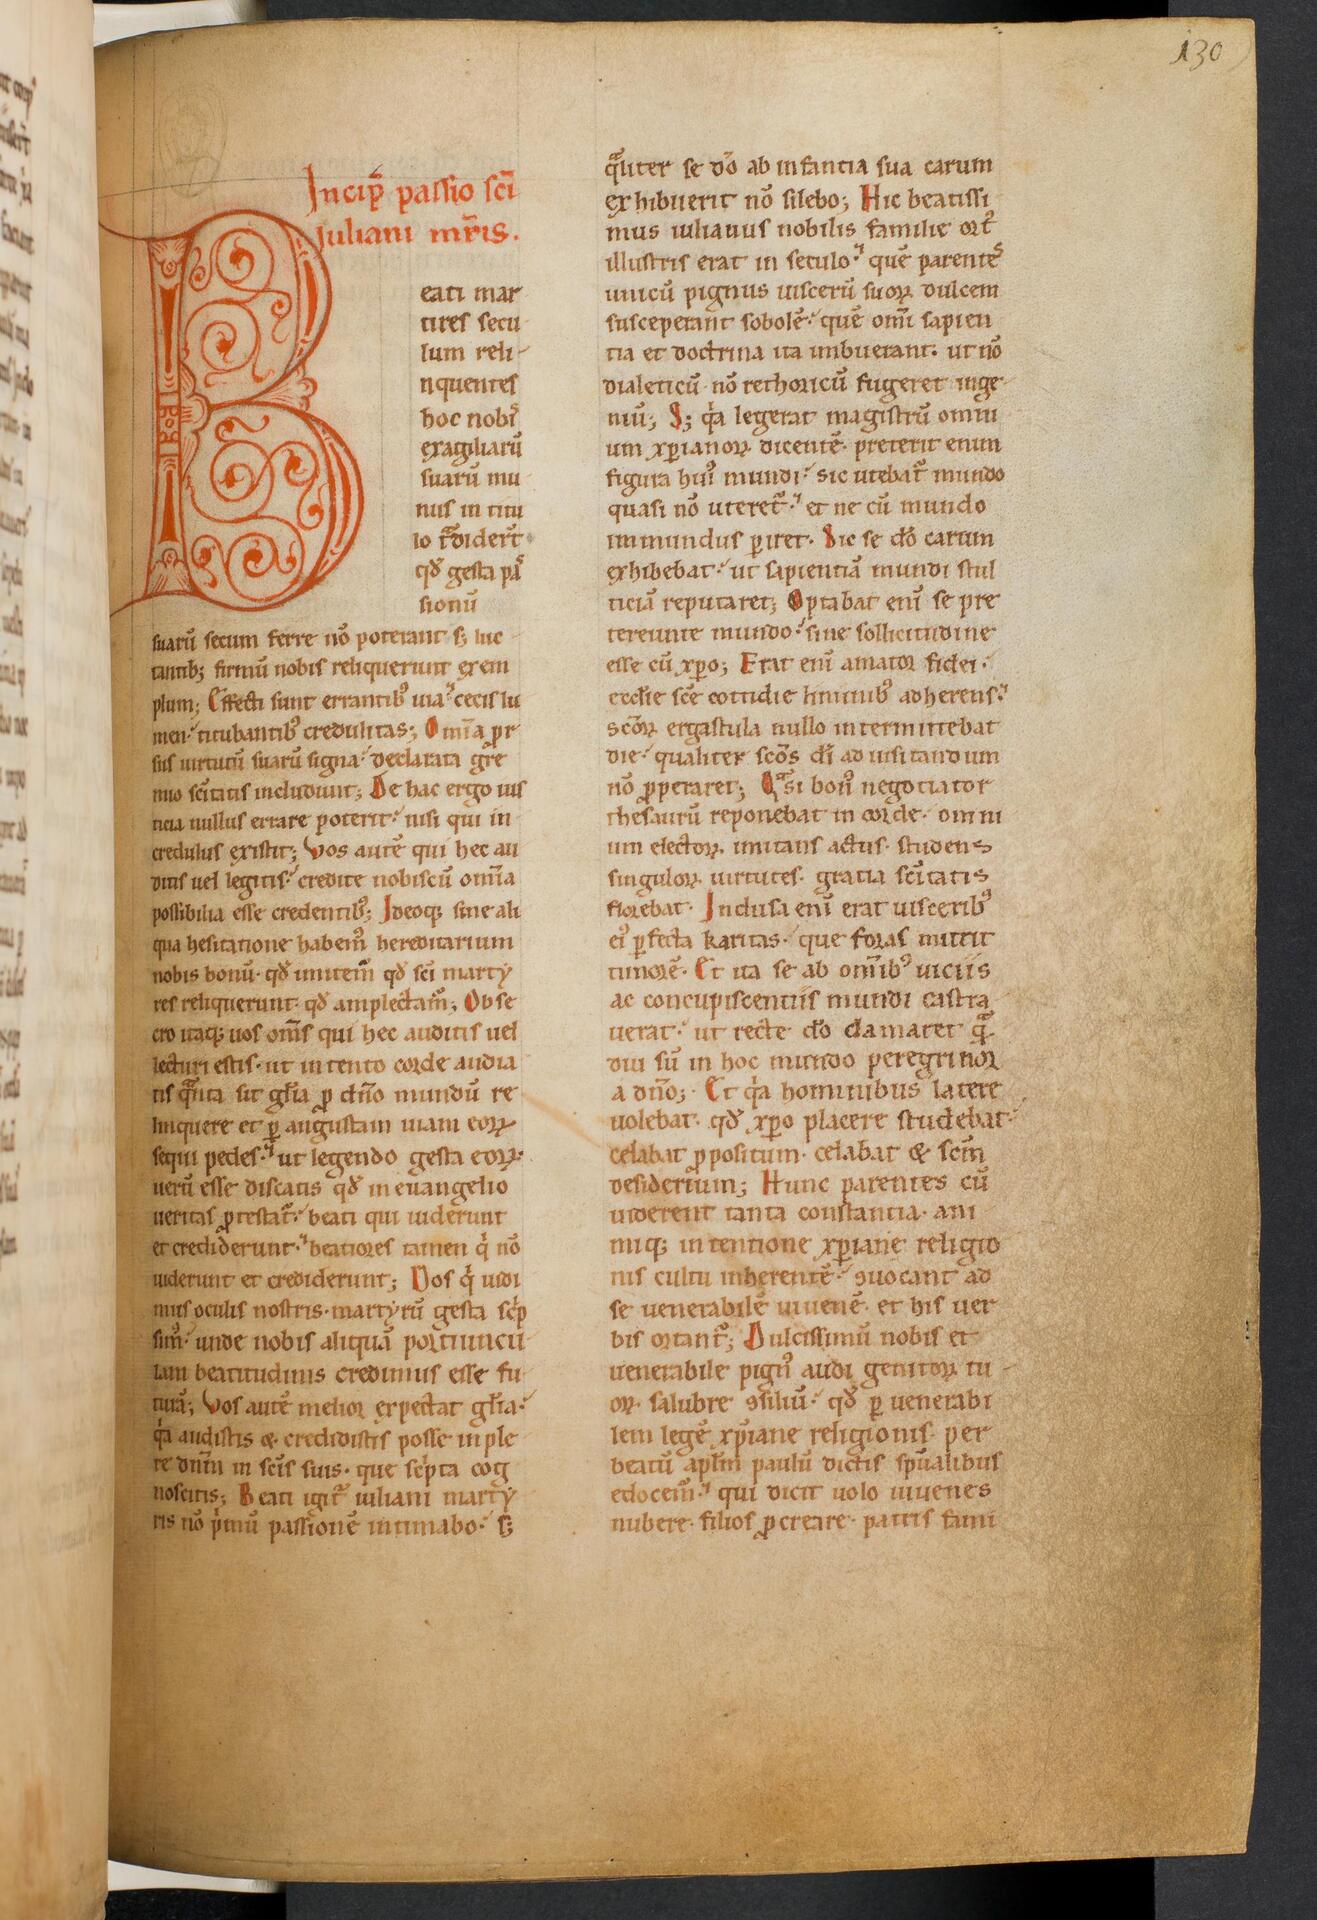 130
Incip̄ passio sc̄i
Iuliani mr̄is.
Beati mar
tires secu
lum reli-
nquentes
hoc nobis
exagiliarū
suarū mu
nus in titu
lo tᵃdider̄t
qđ gesta pas
sionū
suarū secum ferre nō poterant s; luc
tantib; firmū nobis reliquerunt exem
plum; Effecti sunt errantibꝰ uia. cecis lu
men. titubantibꝰ credulitas; Om̄ia pr̄
sus uirtutū suarū signa. declarata gre
mio sc̄itatis includunt; De hac ergo ius
ticia nullus errare poterit. nisi qui in
credulus existit; Vos autē qui hec au
ditis uel legitis. credite nobiscū om̄ia
possibilia esse credentibꝰ; Ideoq; sine ali
qua hesitatione habemꝰ hereditarium
nobis bonū. qđ imitem̄ qđ sc̄i marty
res reliquerunt. qđ amplectam̄; Obse
cro itaq; uos om̄s qui hec auditis uel
lecturi estis. ut intento corde audia
tis qᵃnta sit gl̄ia ꝓ dn̄o mundū re
linquere et ꝑ augustam uiam eoꝝ
sequi pedes. ut legendo gesta eoꝝ.
uerū esse discatis qđ in euangelio
ueritas ꝓtestat᷑. beati qui uiderunt
et crediderunt. beatiores tamen qⁱ nō
uiderunt et crediderunt; Nos qⁱ uidi
mus oculis nostris. martyrū gesta scⁱp
simꝰ. unde nobis aliquā portiuncu
lam beatitudinis credimus esse fu
turā; Vos autē melior expectat gl̄ia.
qⁱa audistis & credidistis posse inple
re dn̄m in sc̄is suis. que scⁱpta cog
noscitis; Beati igit᷑ iuliani marty
ris nō pⁱmū passionē intimabo. s;
qᵃliter se dō ab infantia sua carum
exhibuerit nō silebo; Hic beatissi
mus iulianus nobilis familie ortꝰ
illustris erat in seculo. quē parentes
unicū pignus uiscerū suoꝝ dulcem
susceperant sobolē. quē om̄i sapien
tia et doctrina ita imbuerant. ut nō
dialeticū. nō rethoricū fugeret inge-
niū; S; qⁱa legerat magistrū omni
um xp̄ianoꝝ dicentē. preterit enim
figura huiꝰ mundi. sic utebat᷑ mundo
quasi nō uteret᷑. et ne cū mundo
immundus ꝑiret. Sic se dō carum
exhibebat. ut sapientiā mundi stul
ticiā reputaret; Optabat eni᷑ se pre
tereunte mundo. sine sollicitudine
esse cū xp̄o; Erat eni᷑ amator fidei.
eccl̄ie sc̄e cottidie liminibꝰ adherens.
sc̄oꝝ ergastula nullo intermittebat
die. qualiter sc̄os dī ad uisitandum
nō ꝓperaret; Qᵃsi bonꝰ negotiator
thesaurū reponebat in corde. omni
um electoꝝ imitans actus. studens
singuloꝝ uirtutes. gratia sc̄itatis
florebat. Inclusa eni᷑ erat uisceribꝰ
eiꝰ ꝑfecta karitas. que foras mittit
timorē. Et ita se ab om̄ibꝰ uiciis
ac concupiscentiis mundi castra
uerat. ut recte dō clamaret qᵃm
diu sū in hoc mundo peregrinor
a dn̄o; Et qⁱa hominibus latere
uolebat. qđ xp̄o placere studebat.
celabat ꝓpositum. celabat & sc̄m
desiderium; Hunc parentes cū
uiderent tanta constantia. ani
miq; intentione xp̄iane religio
nis cultu inherentē. ꝯuocant ad
se uenerabilē iuuenē. et his uer
bis ortant᷑; Dulcissimū nobis et
uenerabile pignꝰ audi genitoꝝ tu-
oꝝ salubre ꝯsiliū. qđ ꝑ uenerabi
lem legē xp̄iane religionis. per
beatū apl̄m paulū dictis sp̄ualibus
edocemꝰ. qui dicit uolo iuuenes
nubere. filios ꝓcreare. patris fami